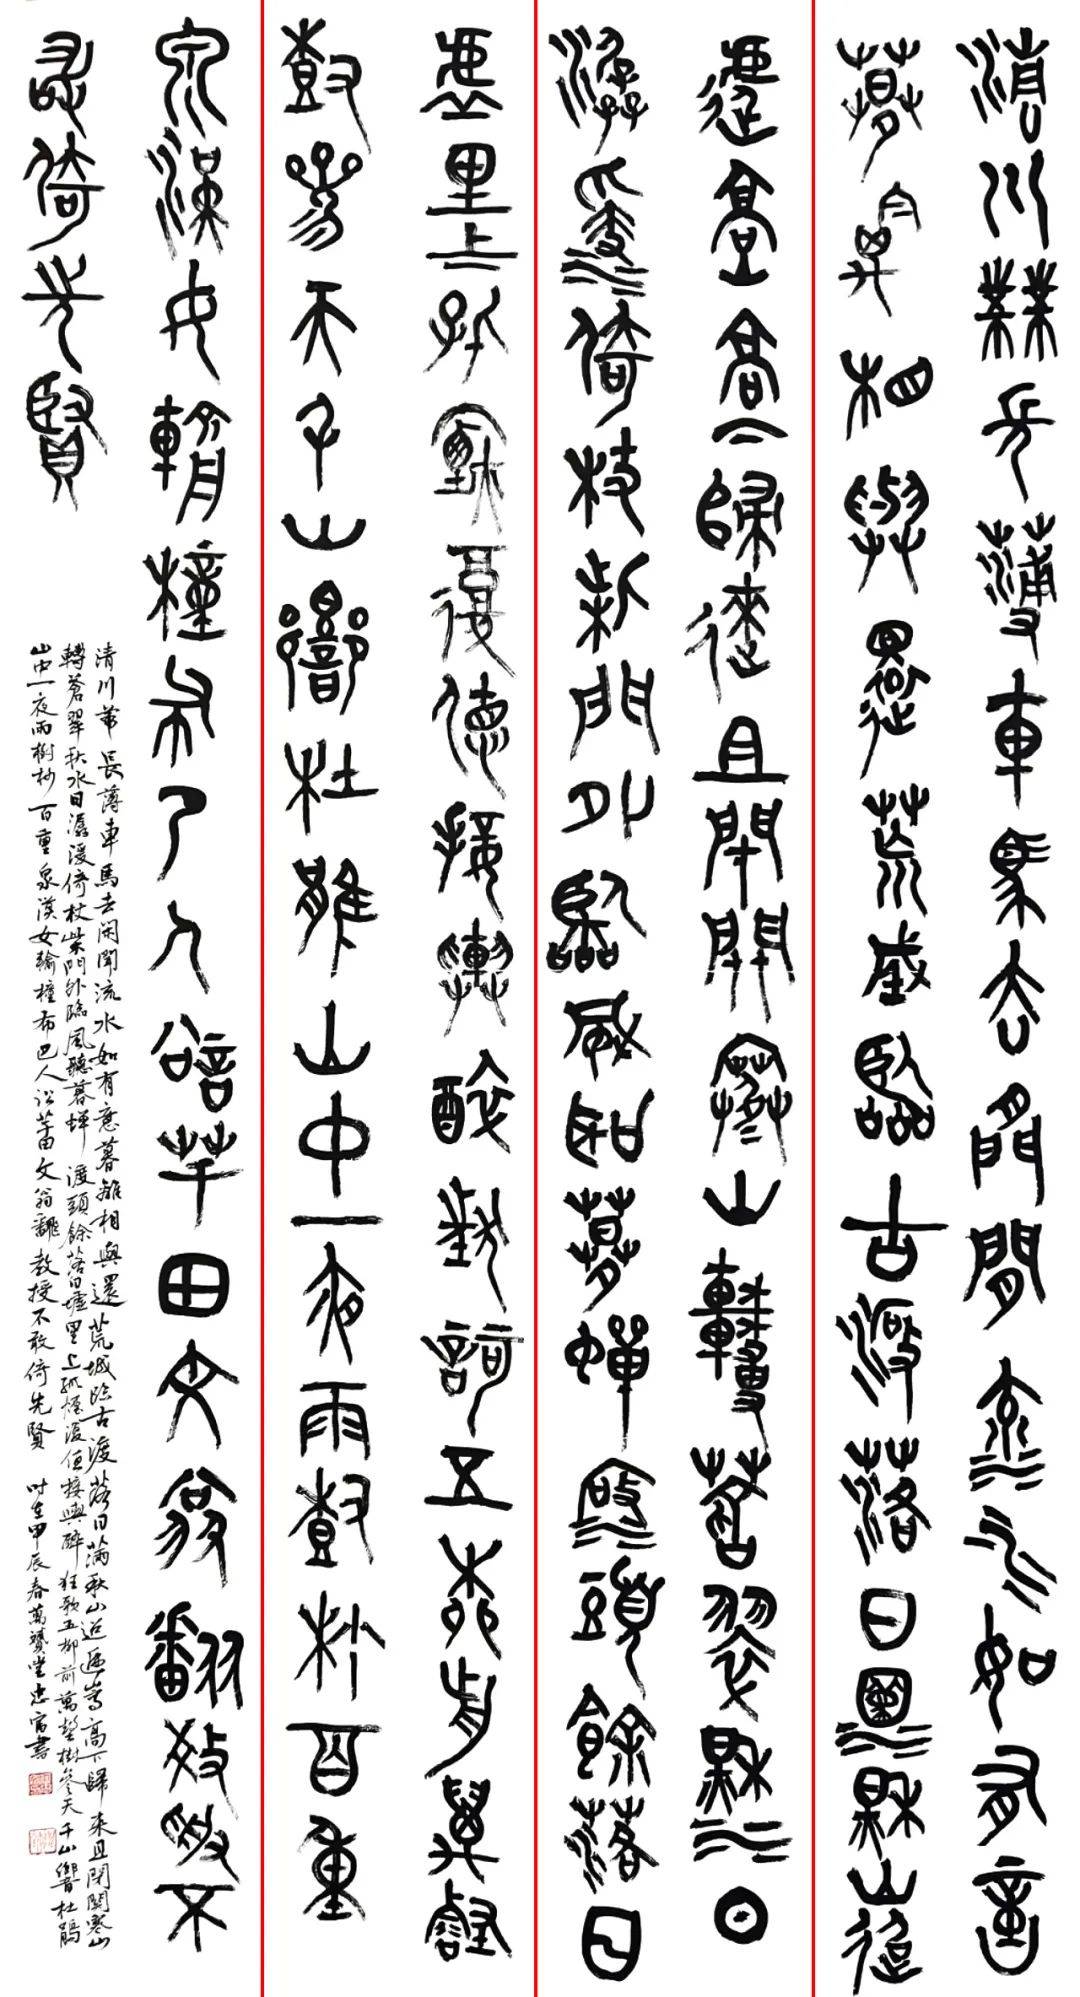 清川帶長薄車馬去閒閒流水如有意
暮禽相與還荒城臨古渡落日滿秋山迢
遞嵩高下歸來且閉關寒山轉蒼翠秋水日
潺湲倚杖柴門外臨風聽暮蟬渡頭餘落日
墟里上孤煙復值接輿醉狂歌五柳前萬壑
樹參天千山響杜鵑山中一夜雨樹杪百重
泉漢女輸橦布巴人訟芋田文翁翻教授不
敢倚先賢
清川帶長薄車馬去閑閑流水如有意暮禽相與還荒城臨古渡落日滿秋山迢遞嵩高下歸來且閉關寒山
轉蒼翠秋水日潺湲倚杖柴門外臨風聽暮蟬渡頭餘落日墟里上孤煙復值接輿醉狂歌五柳前萬壑樹參天千山響杜鵑
山中一夜雨樹杪百重泉漢女輸橦布巴人訟芋田文翁翻教授不敢倚先賢 時在甲辰春萬堂忠富書